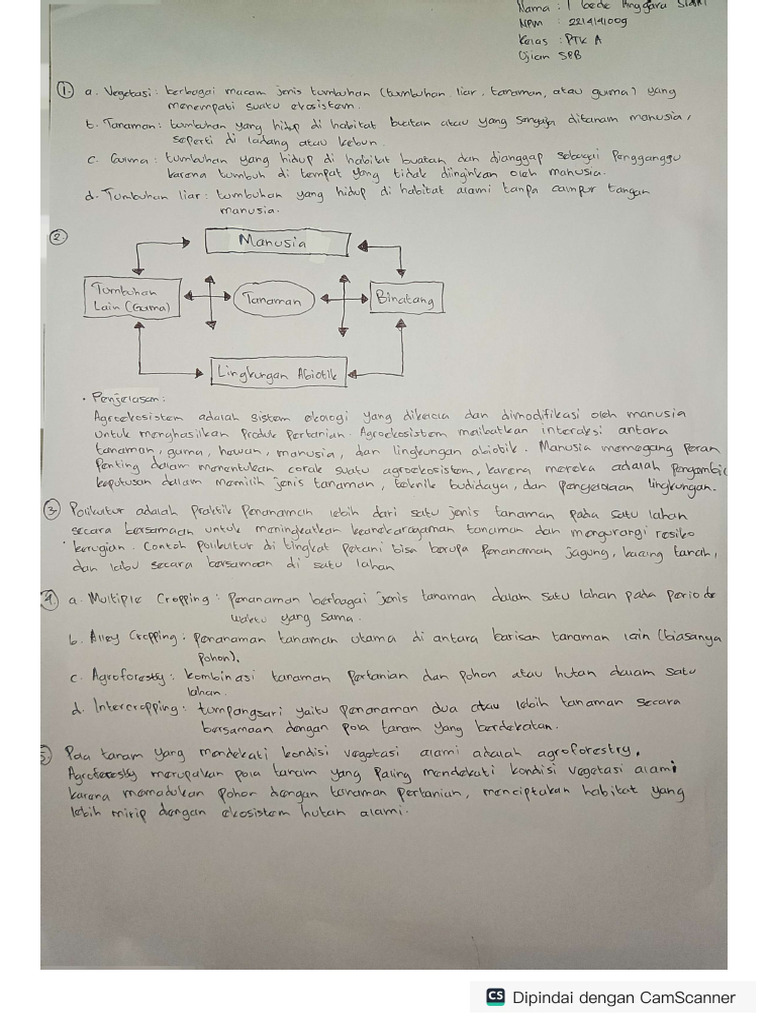 Nama : I Gede Anggara
NPM : 2214141009
Kelas : PTK A
Ujian SPB
1. a. Vegetasi : berbagai macam jenis tumbuhan (tumbuhan liar, tanaman, atau gulma) yang
menempati suatu ekosistem.
b. Tanaman : tumbuhan yang hidup di habitat buatan atau yang sengaja ditanam manusia,
seperti di ladang atau kebun.
c. Gulma : tumbuhan yang hidup di habitat buatan dan dianggap sebagai Pengganggu
karena tumbuh di tempat yang tidak diinginkan oleh manusia.
d. Tumbuhan liar : tumbuhan yang hidup di habitat alami tanpa campur tangan
manusia.
2.
Manusia
Tumbuhan
Lain (Gulma)
Tanaman
Binatang
Lingkungan Abiotik
• Penjelasan :
Agroekosistem adalah sistem ekologi yang dikelola dan dimodifikasi oleh manusia
untuk menghasilkan Produk Pertanian. Agroekosistem melibatkan interaksi antara
tanaman, gulma, hewan, manusia, dan lingkungan abiotik. Manusia memegang peran
Penting dalam menentukan corak suatu agroekosistem, karena mereka adalah Pengambil
keputusan dalam memilih jenis tanaman, teknik budidaya, dan Pengelolaan lingkungan.
3. Polikultur adalah Praktik Penanaman lebih dari satu jenis tanaman pada satu lahan
secara bersamaan untuk meningkatkan keanekaragaman tanaman dan mengurangi resiko
kerugian. Contoh Polikultur di tingkat petani bisa berupa Penanaman jagung, kacang tanah,
dan labu secara bersamaan di satu lahan
4. a. Multiple Cropping : Penanaman berbagai jenis tanaman dalam satu lahan pada periode
waktu yang sama.
b. Alley Cropping : penanaman tanaman utama di antara barisan tanaman lain (biasanya
Pohon).
c. Agroforestry : kombinasi tanaman Pertanian dan pohon atau hutan dalam satu
lahan.
d. Intercropping : tumpangsari yaitu Penanaman dua atau lebih tanaman secara
bersamaan dengan pola tanam yang berdekatan.
5. Pola tanam yang mendekati kondisi vegetasi alami adalah agroforestry.
Agroforestry merupakan pola tanam yang Paling mendekati kondisi vegetasi alami
karena memadukan Pohon dengan tanaman Pertanian, menciptakan habitat yang
lebih mirip dengan ekosistem hutan alami.
CS Dipindai dengan CamScanner